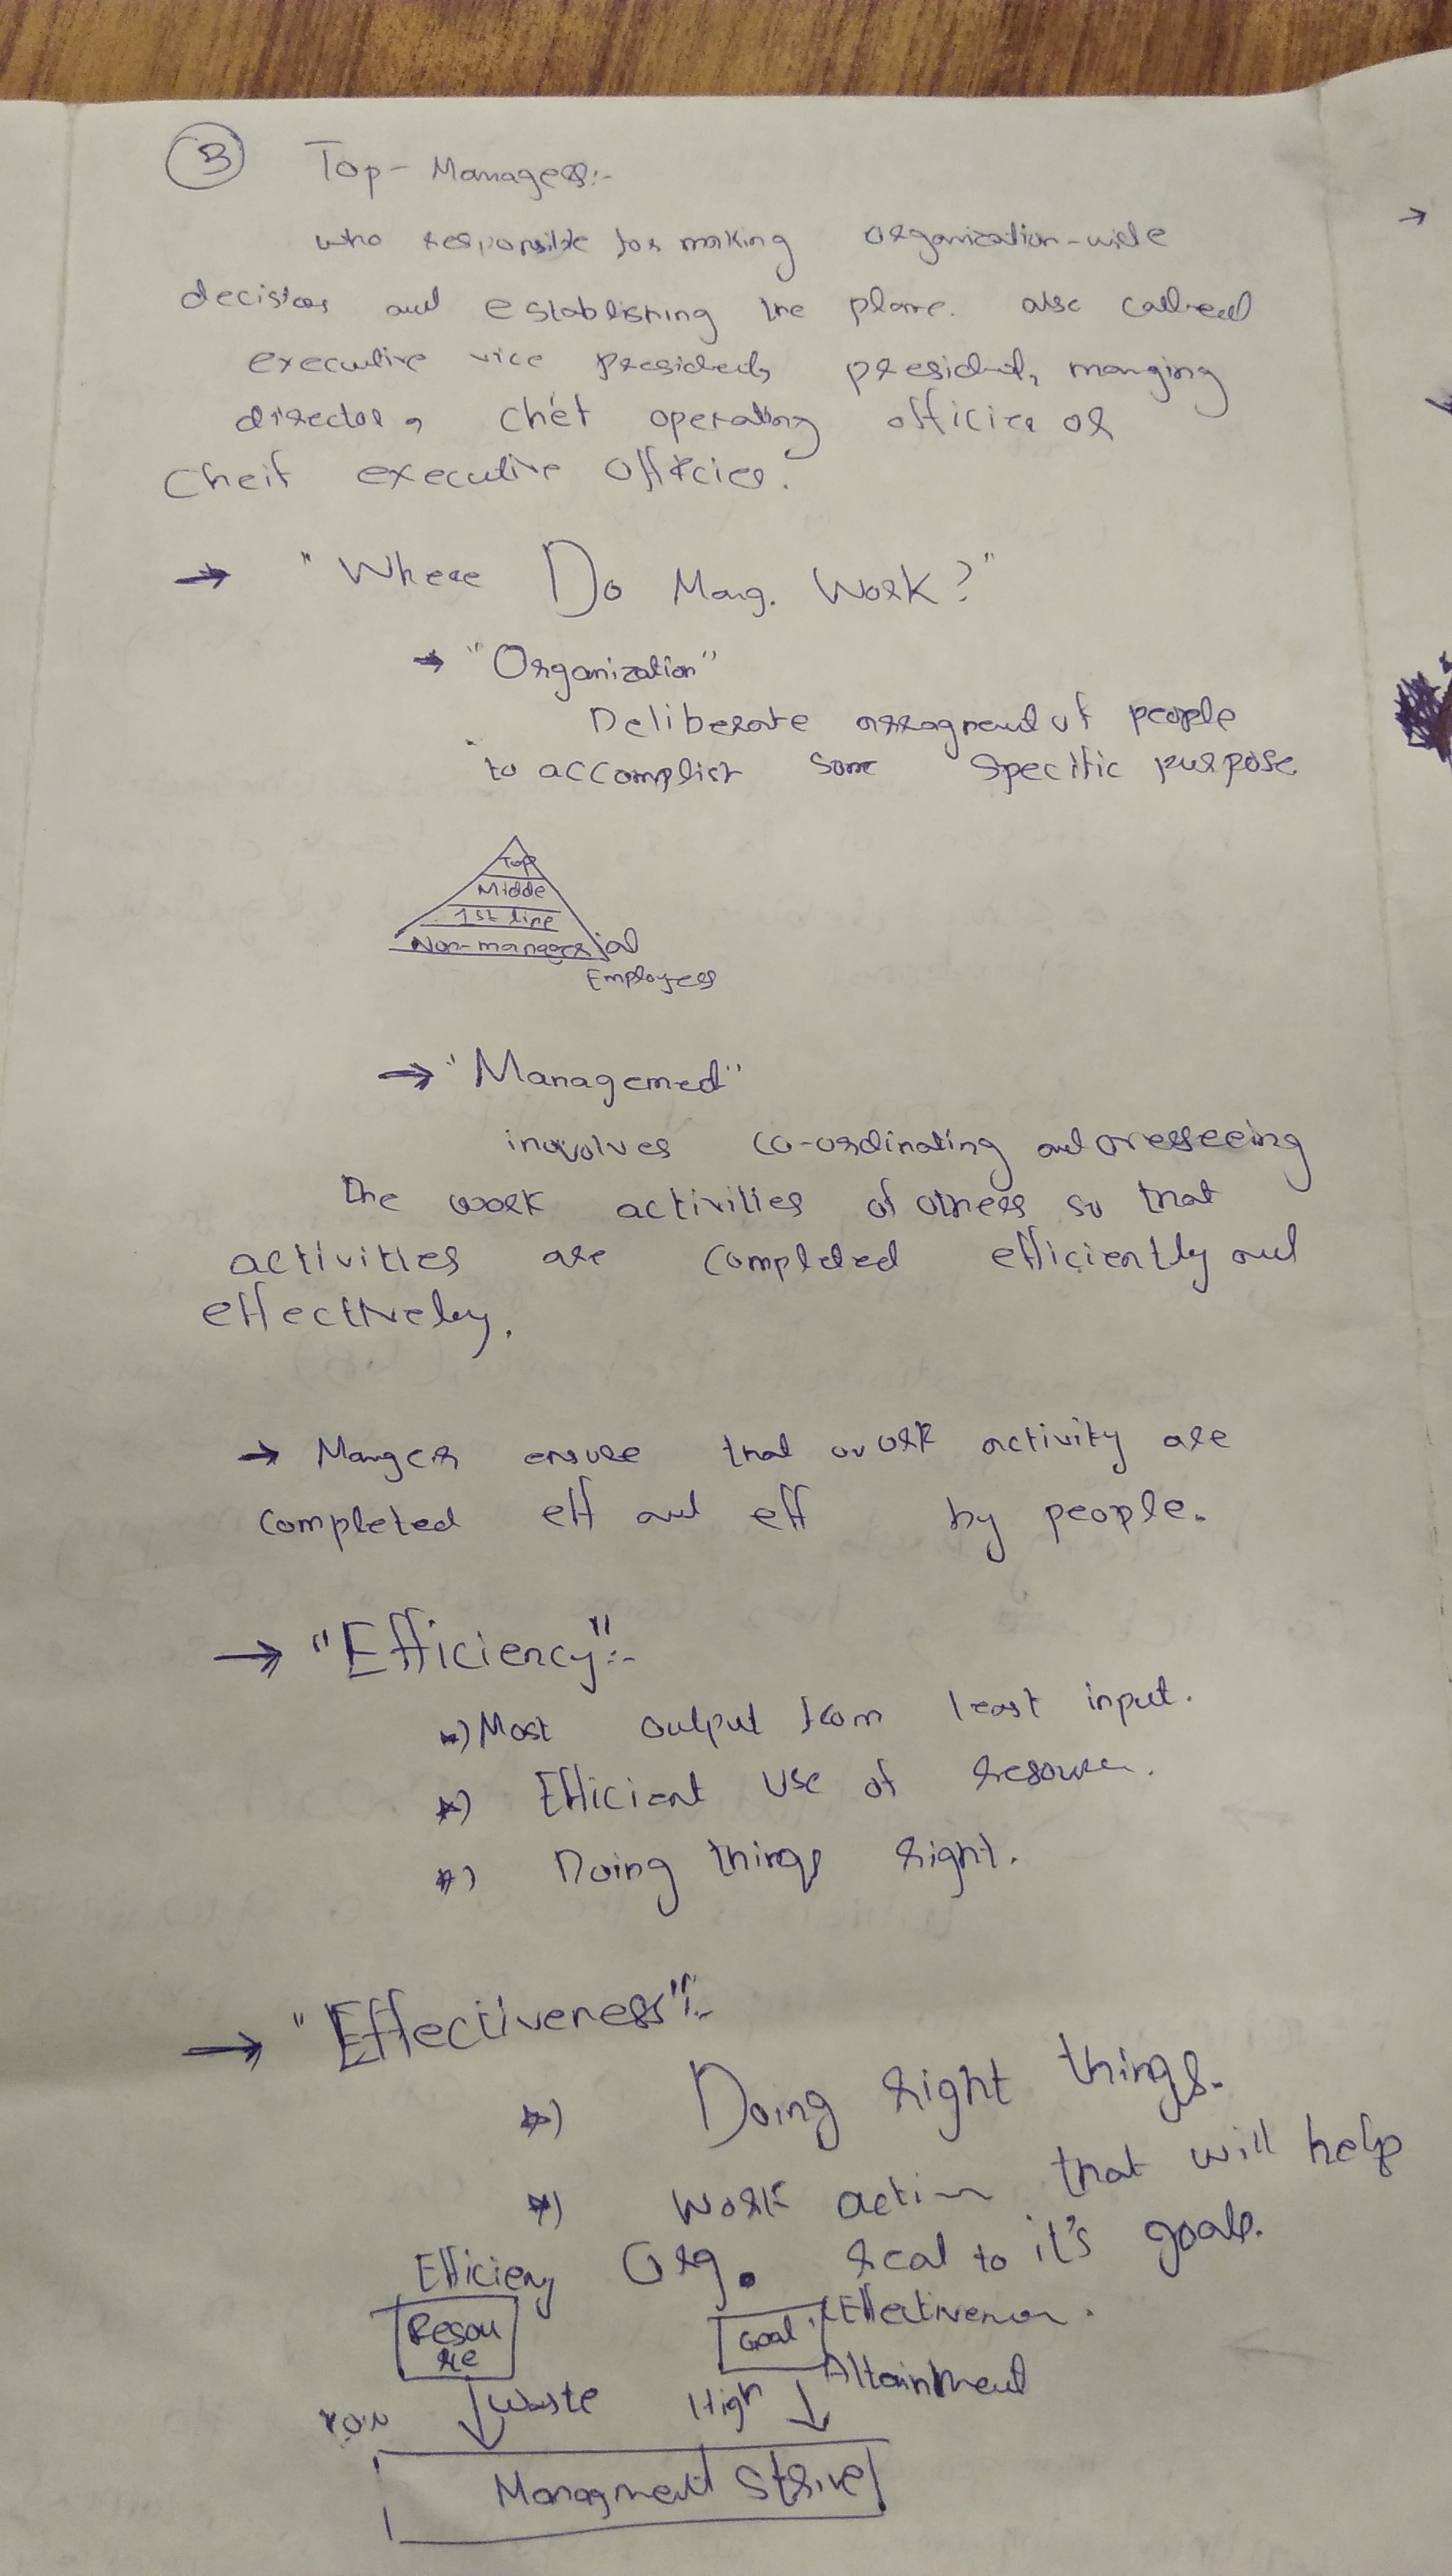 3 Top- Managers:-
who responsible for making organization-wide
decisions and establishing the plane. also called
executive vice president, president, manging
director, cheif operating officier or
Cheif executive officier.
→ "Where Do Mang. Work?"
→ "Organization"
Deliberate of people
to accomplish some specific purpose
Top
Midde
1st line
Non-managerial
Employees
→ "Management"
invovles co-ordinating and overseeing
the work activities of others so that
activities are completed efficiently and
effectively.
→ Manger ensure that work activity are
completed eff and eff by people.
→ "Efficiency":-
*) Most output from least input.
*) Efficient use of resource.
*) Doing things right.
→ "Effectiveness":-
*) Doing right things.
*) work action that will help
Org. to it's goals.
Efficieny
Effectiveness.
Resou
rce
Goal
Attainment
waste High
Managment Strive